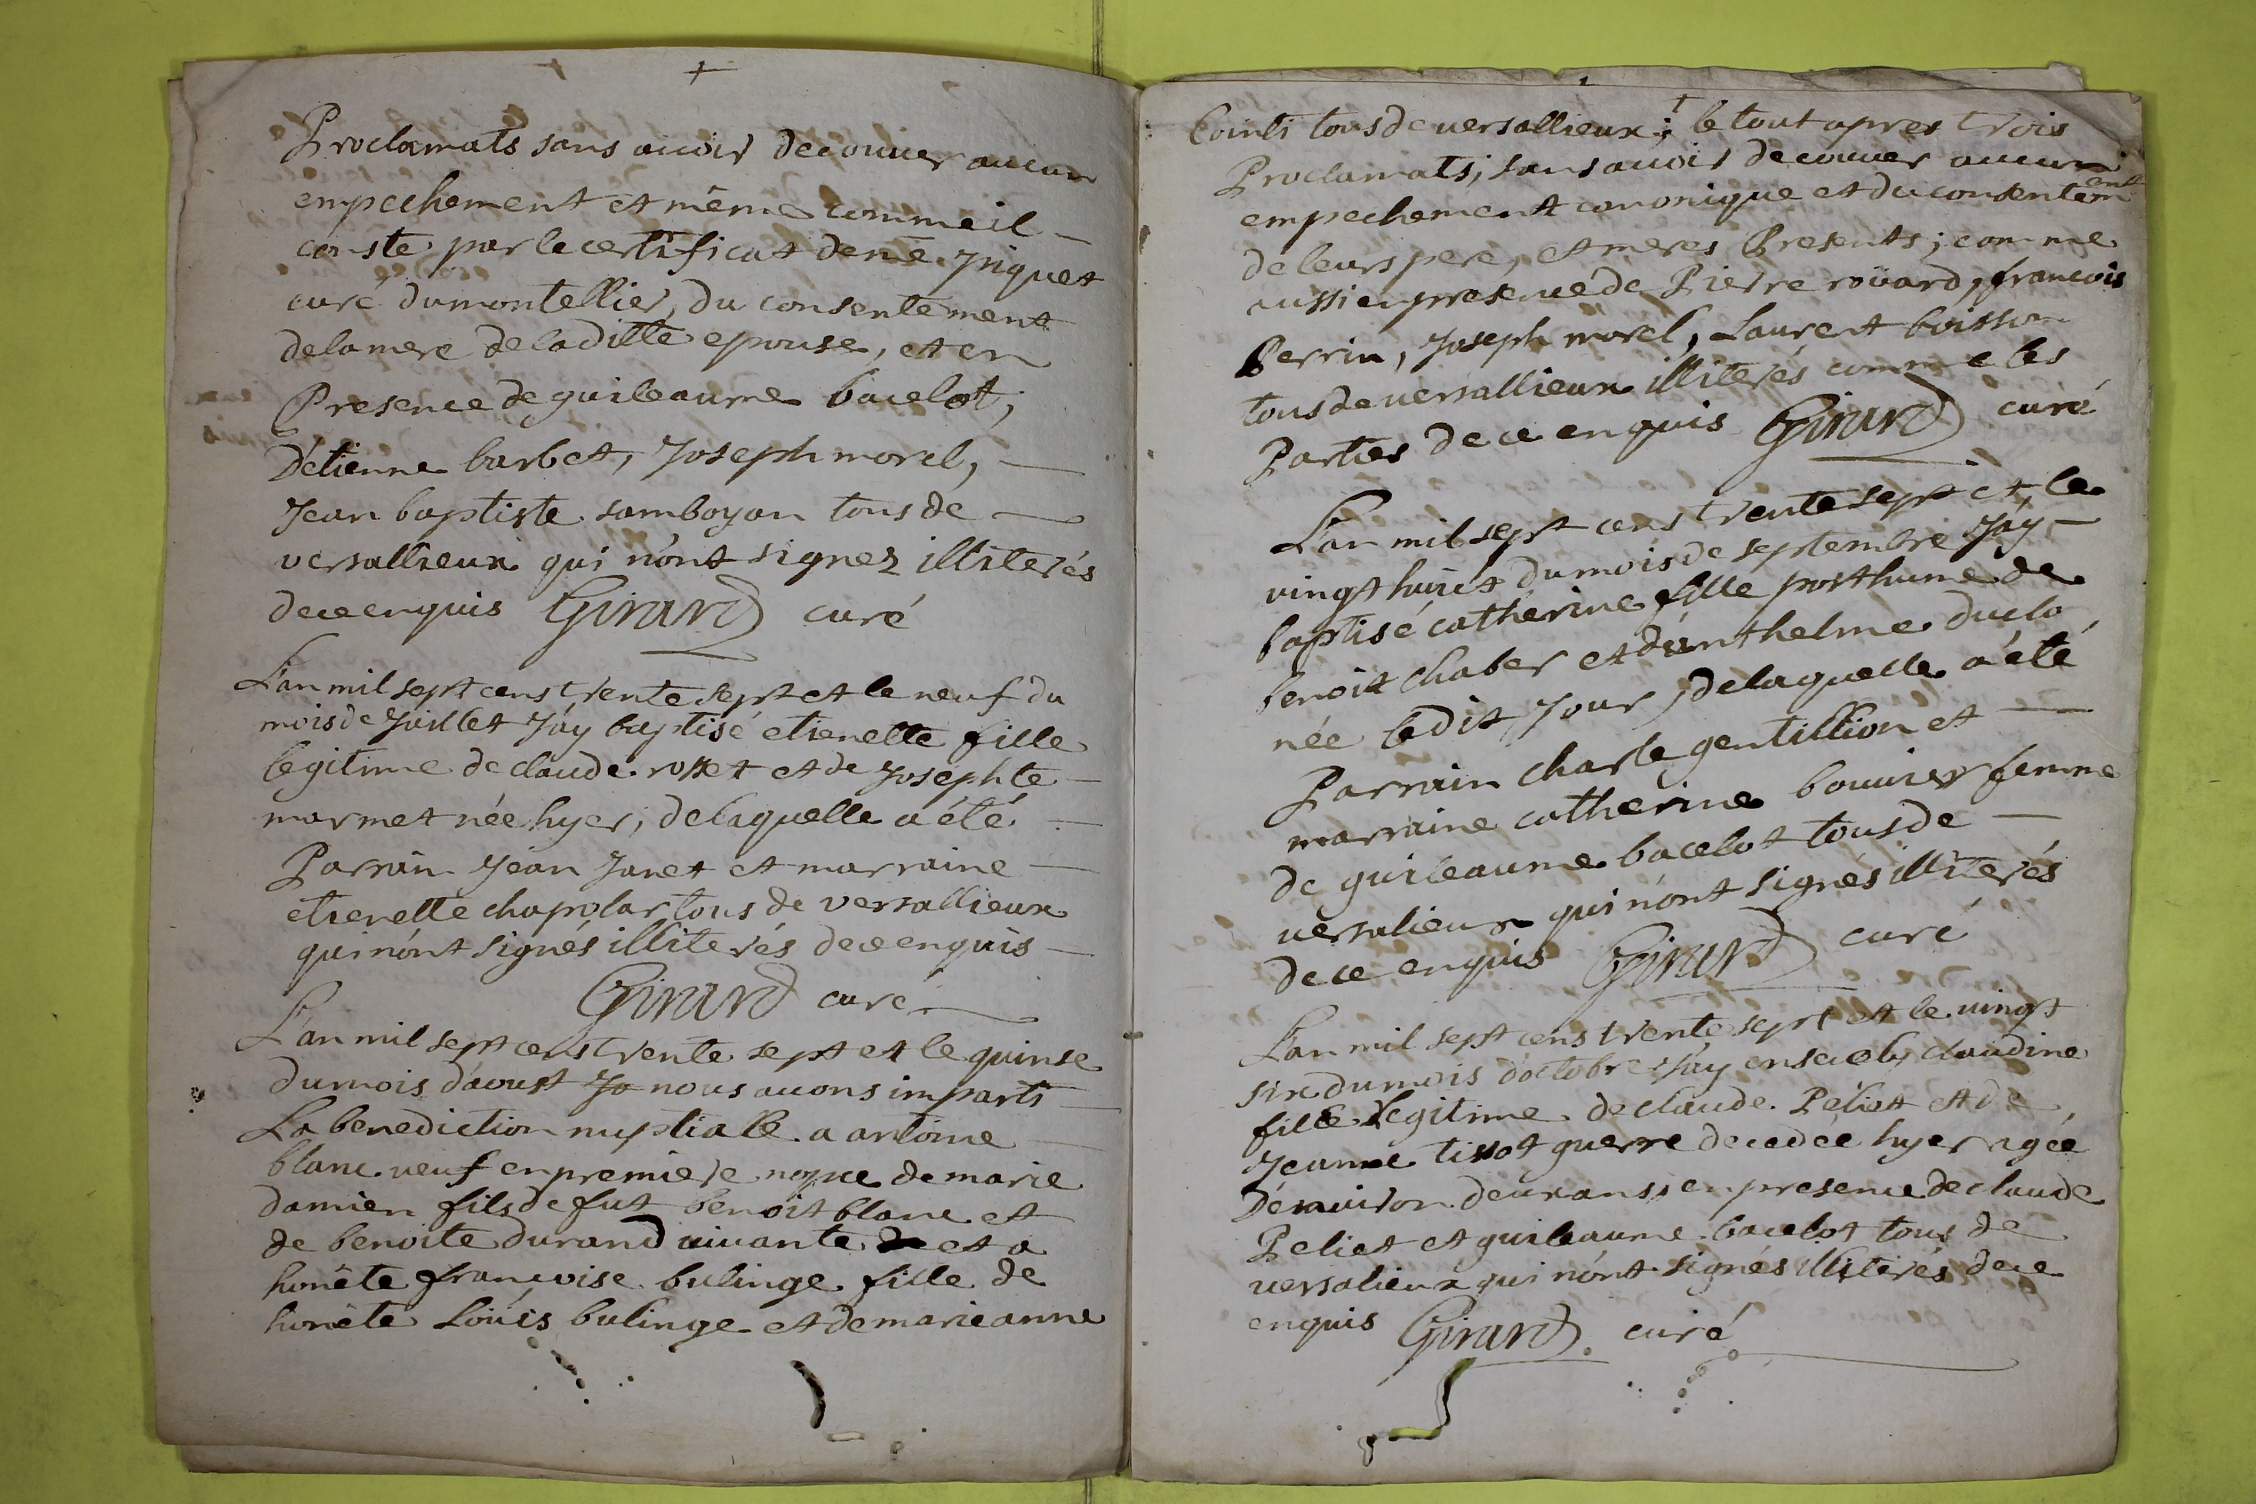 Proclamats sans avoir decouver aucun
empechement et même comme il
conste par le certificat de me. Jriquet
curé du montellier, du consentement
de la mere de la ditte epouse, et en
Presence de guileaume bacelot,
D'etienne barbet, Joseph morel,
Jean baptiste samboyan tous de
versallieux qui n'ont signez illiterés
de ce enquis Girard curé
L'an mil sept cens trente sept et le neuf du
mois de Juillet J'ay baptisé etienette fille
legitime de claude rosset et de Josephte
marmet née hyer, de laquelle a été
Parrain Jean Janet et marraine
etienette chapolar tous de versallieux
qui n'ont signés illiterés de ce enquis
Girard curé
L'an mil sept cens trente sept et le quinse
du mois d'aoust Ja nous avons imparti
La benediction nuptialle a antoine
blanc veuf en premiere nopce de marie
damien fils de fut benoit blanc et
de benoite durand vivante et a
honête françoise bulinge fille de
honête Loüis bulinge et de marie anne
Cointi tous de versallieux; le tout apres trois
Proclamats; sans avoir decouver aucun
empechement cononique et du consentement
de leurs pere, et meres Presents; comme
aussi en presence de Pierre roüard, françois
Perrin, Joseph morel, Laurent boisson
tous de versallieux illiterés comme les
Parties de ce enquis Girard curé
L'an mil sept cens trente sept et le
vingt huict du mois de septembre J'ay
baptisé catherine fille posthume de
benoit Chaber et d'anthelme duclo
née le dit Jour, de laquelle a été
Parrain charle gentillion et
marraine catherine bouvier femme
de guileaume bacelot tous de
versalieux qui n'ont signés illiterés
de ce enquis Girard curé
L'an mil sept cens trente sept et le vingt
six du mois d'octobre J'ay enseveli, claudine
fille Legitime de claude Peliet et de
Jeanne tissot guerre decedée hyer agée
D'environ deux ans, en presence de claude
Peliet et guileaume bacelot tous de
versalieux qui n'ont signés illiterés de ce
enquis Girard curé